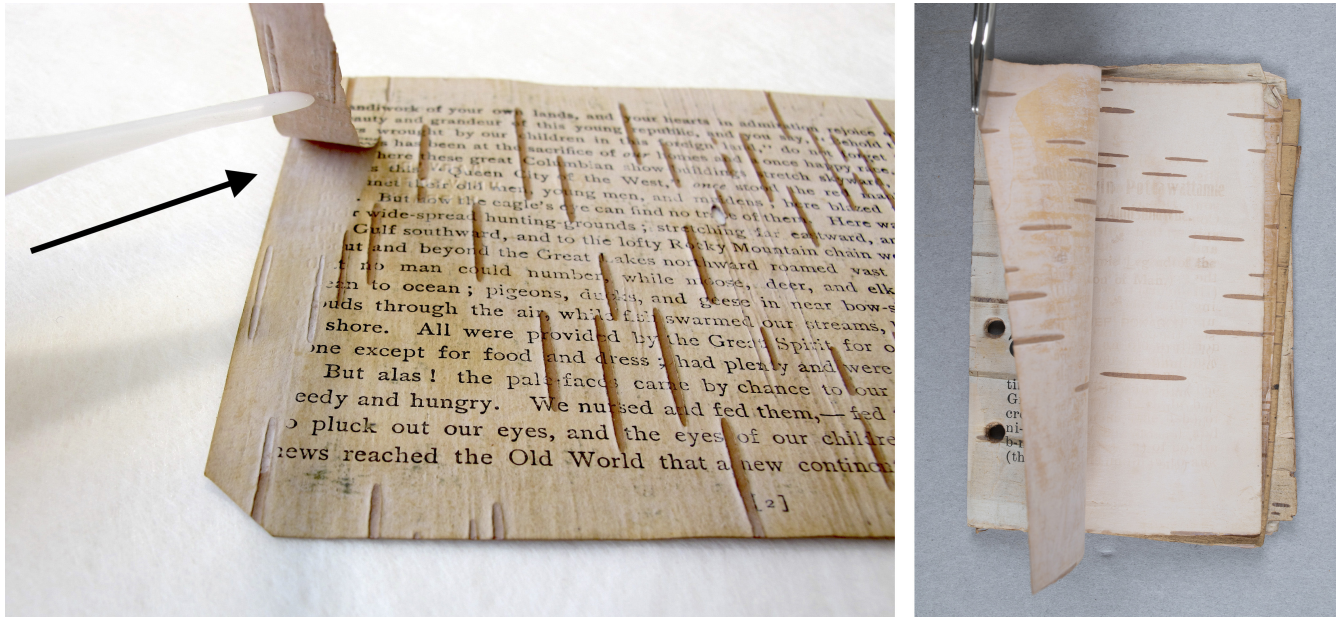 andiwork of your own lands, and your hearts in admiration rejoice
auty and grandeur of this young republic, and you say, "behold
wrought by our children in this foreign land," do not forget
s has been at the sacrifice of our homes and once happy race.
here these great Columbian show buildings stretch skyward,
this "Queen City of the West," once stood the red
their old men, young men, and maidens; here blazed
. But now the eagle's eye can find no trace of them. Here
r wide-spread hunting-grounds; stretching far eastward,
Gulf southward, and to the lofty Rocky Mountain chain
ut and beyond the Great Lakes northward roamed vast
t no man could number, while moose, deer, and elk
an to ocean; pigeons, ducks, and geese in near bow-s
uds through the air, while fish swarmed our streams,
shore. All were provided by the Great Spirit for o
one except for food and dress; had plenty and were
But alas! the pale-faces came by chance to our
eedy and hungry. We nursed and fed them,—fed
o pluck out our eyes, and the eyes of our childre
news reached the Old World that a new continent
[2]
in Pottawattamie
ti
G
cr
ni-
b-r
(th